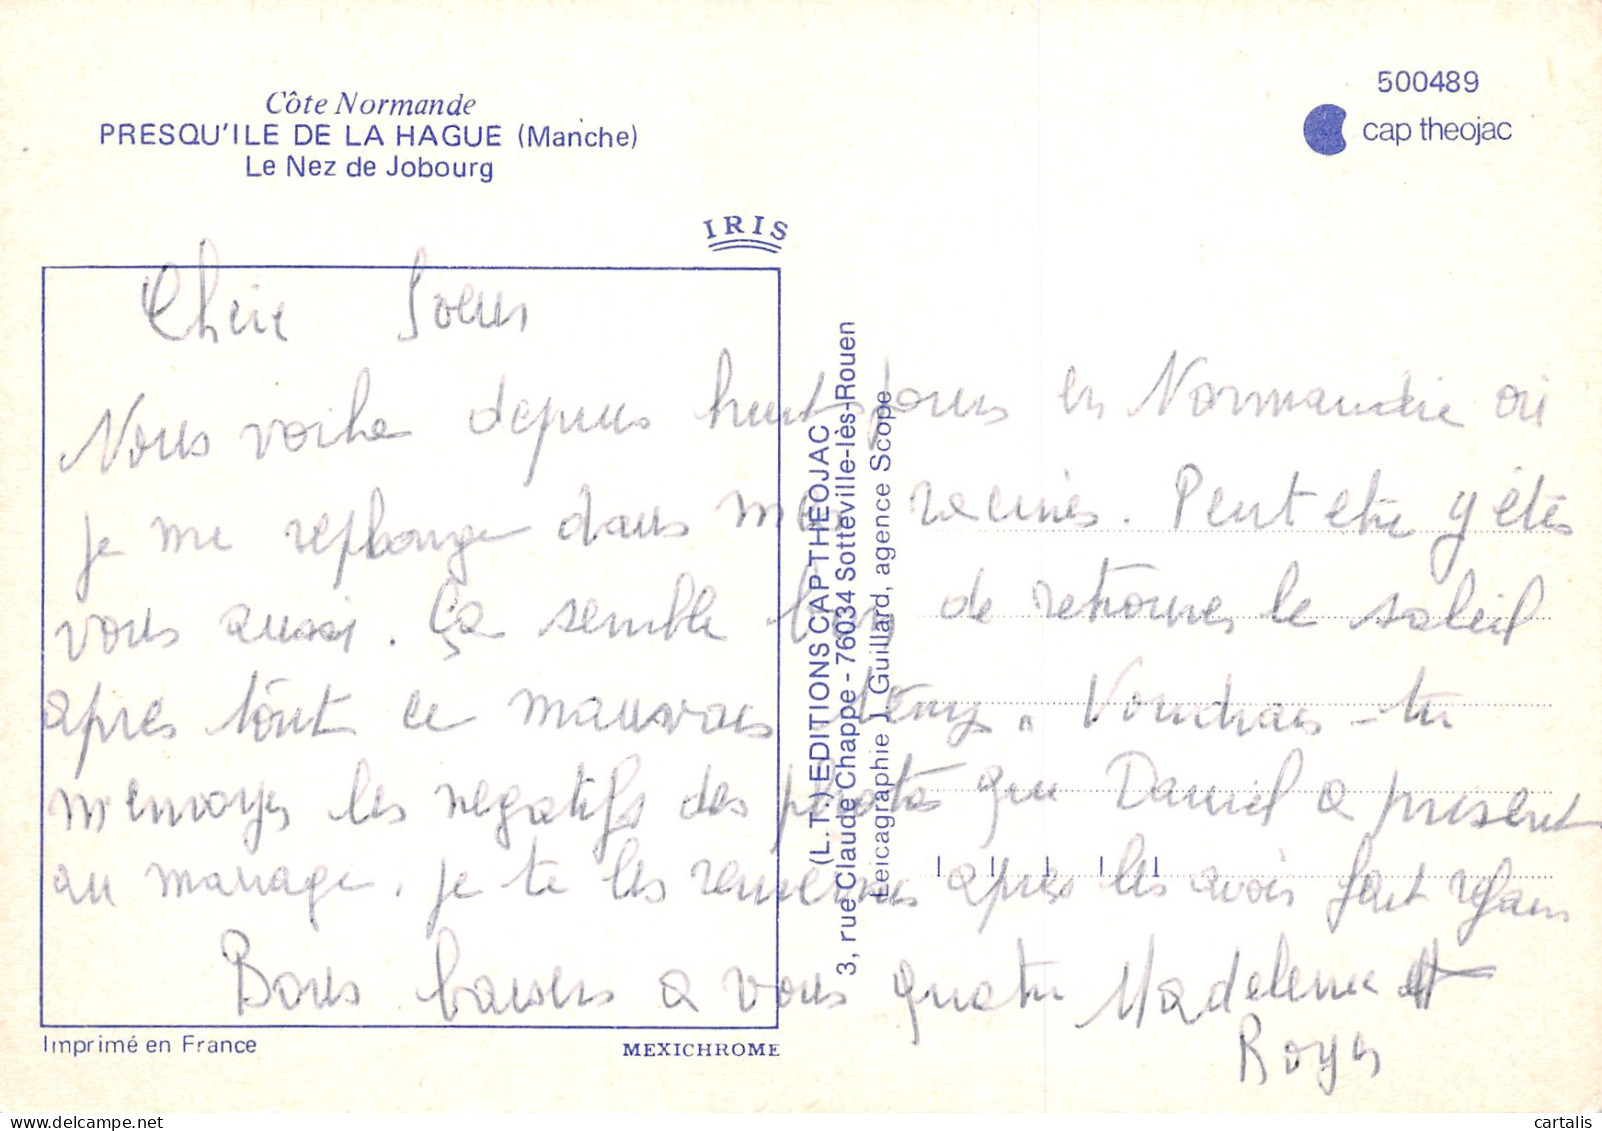 500489
cap theojac
Côte Normande
PRESQU'ILE DE LA HAGUE (Manche)
Le Nez de Jobourg
IRIS
Chère Soeur
Nous voila depuis huit jours en Normandie où
je me replonge dans mes racines. Peut etre y étés
vous aussi. Ça semble bon de retrouver le soleil
apres tout ce mauvais temps. Voudrais-tu
m'envoyer les negatifs des photos que Daniel a présent
au mariage. je te les remettrai apres les avoir fait refair
Bons baisers a vous quatre Madeleine et
Roger
(L.T.) EDITIONS CAP THEOJAC
3, rue Claude Chappe - 76034 Sotteville-lès-Rouen
Leicagraphie J. Guillard, agence Scope
Imprimé en France
MEXICHROME
cartalis